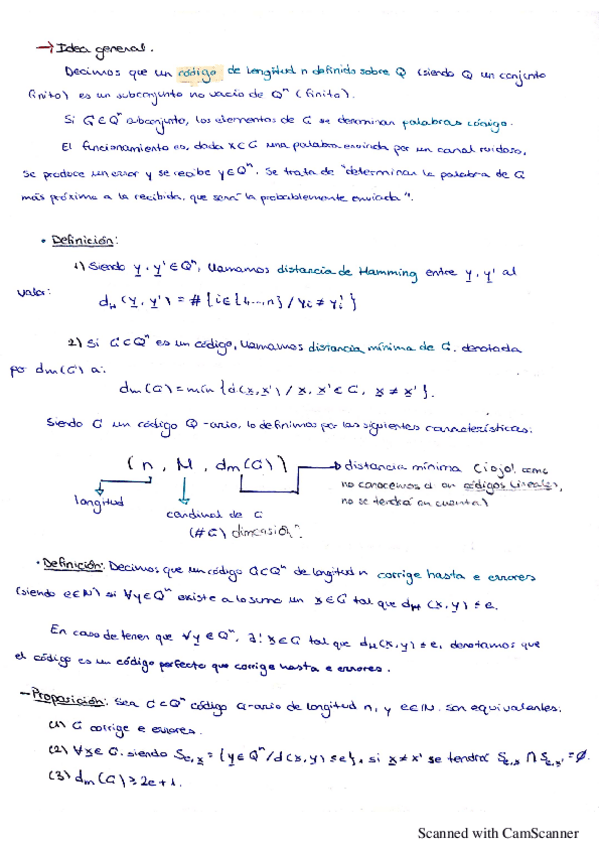 → Idea general.
Decimos que un código de longitud n definido sobre Q (siendo Q un conjunto
finito) es un subconjunto no vacío de Qⁿ (finito).
Si C⊆Qⁿ subconjunto, los elementos de C se determinan palabras código.
El funcionamiento es, dada x∈C una palabra enviada por un canal ruidoso,
se produce un error y se recibe y∈Qⁿ. Se trata de "determinar la palabra de C
más próxima a la recibida, que será la probablemente enviada".
• Definición:
1) Siendo y, y' ∈ Qⁿ, llamamos distancia de Hamming entre y, y' al
valor:
d_H (y, y') = # {i∈{1,...,n} / yi ≠ yi'}
2) Si C⊂Qⁿ es un código, llamamos distancia mínima de C, denotada
por dm(C) a:
dm(C) = mín {d(x,x') / x, x' ∈ C, x ≠ x'}.
Siendo C un código Q-ario, lo definimos por las siguientes características:
(n, M, dm(C)) → distancia mínima (¡ojo!
no conocemos
códigos lineales,
no se tendrá en cuenta)
longitud
cardinal de C
(#C) dimensión".
• Definición: Decimos que un código C⊂Qⁿ de longitud n corrige hasta e errores
(siendo e∈ℕ) si ∀y∈Qⁿ existe a lo sumo un x∈C tal que d_H (x,y) ≤ e.
En caso de tener que ∀y∈Qⁿ, ∃! x∈C tal que d_H(x,y) ≤ e, denotamos que
el código es un código perfecto que corrige hasta e errores.
- Proposición: Sea C⊂Qⁿ código q-ario de longitud n, y e∈ℕ. son equivalentes:
(1) C corrige e errores.
(2) ∀x∈C, siendo S_e,x = {y∈Qⁿ / d(x,y) ≤ e}, si x≠x' se tendrá S_e,x ∩ S_e,x' = ∅.
(3) dm(C) ≥ 2e+1.
Scanned with CamScanner